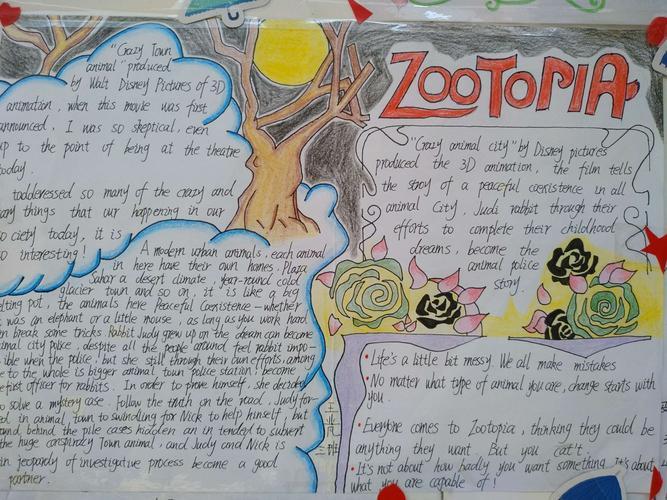 "Crazy Town
animal" produced
by Walt Disney Pictures of 3D
animation, when this movie was first
announced, I was so skeptical, even
up to the point of being at the theatre
today.
todderessed so many of the crazy and
things that our happening in our
society today, it is
so interesting!
A modern urban animals, each animal
in here have their own homes. Plaza,
sahar a desert climate, year-round cold
glacier town and so on, it is like a big
elting pot, the animals here Peaceful Coexistence - whether
was an elephant or a little mouse, as long as you work hard
can break some tricks Rabbit Judy grew up on the dream can become
animal city police, despite all the people around feel rabbit impo-
ible when the police, but she still through their own efforts, among
to the whole is bigger animal town police station, become
first officer for rabbits. In order to prove himself, she decided
to solve a mystery case. Follow the truth on the road, Judy for-
ed in animal, town to swindling for Nick to help himself, but
found behind the pile cases hidden an in tended to subvert
the huge conspiracy Town animal, and Judy and Nick is
in jeopardy of investigative process become a good
partner.
ZOOTOPIA
"Crazy animal city" by Disney pictures
produced the 3D animation, the film tells
the stroy of a peaceful coexistence in all
animal City, Judi rabbit through their
efforts to complete their childhood
dreams, become the
animal police
story.
• Life's a little bit messy. We all make mistakes
• No matter what type of animal you are, change starts with
you.
• Everyone comes to Zootopia, thinking they could be
anything they want. But you cat't.
• It's not about how badly you want something. It's about
what you are capable of!